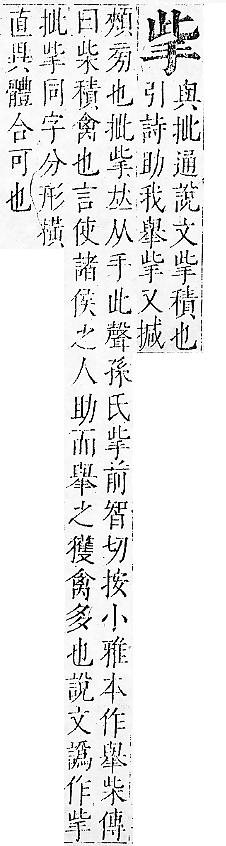 㧘
與㧗通說文㧘積也
引詩助我舉㧘又搣
頰㫄也㧗㧘𠀤从手此聲孫氏㧘前智切按小雅本作舉柴傳
曰柴積禽也言使諸侯之人助而舉之獲禽多也說文譌作㧘
㧗㧘同字分形橫
直異體合可也